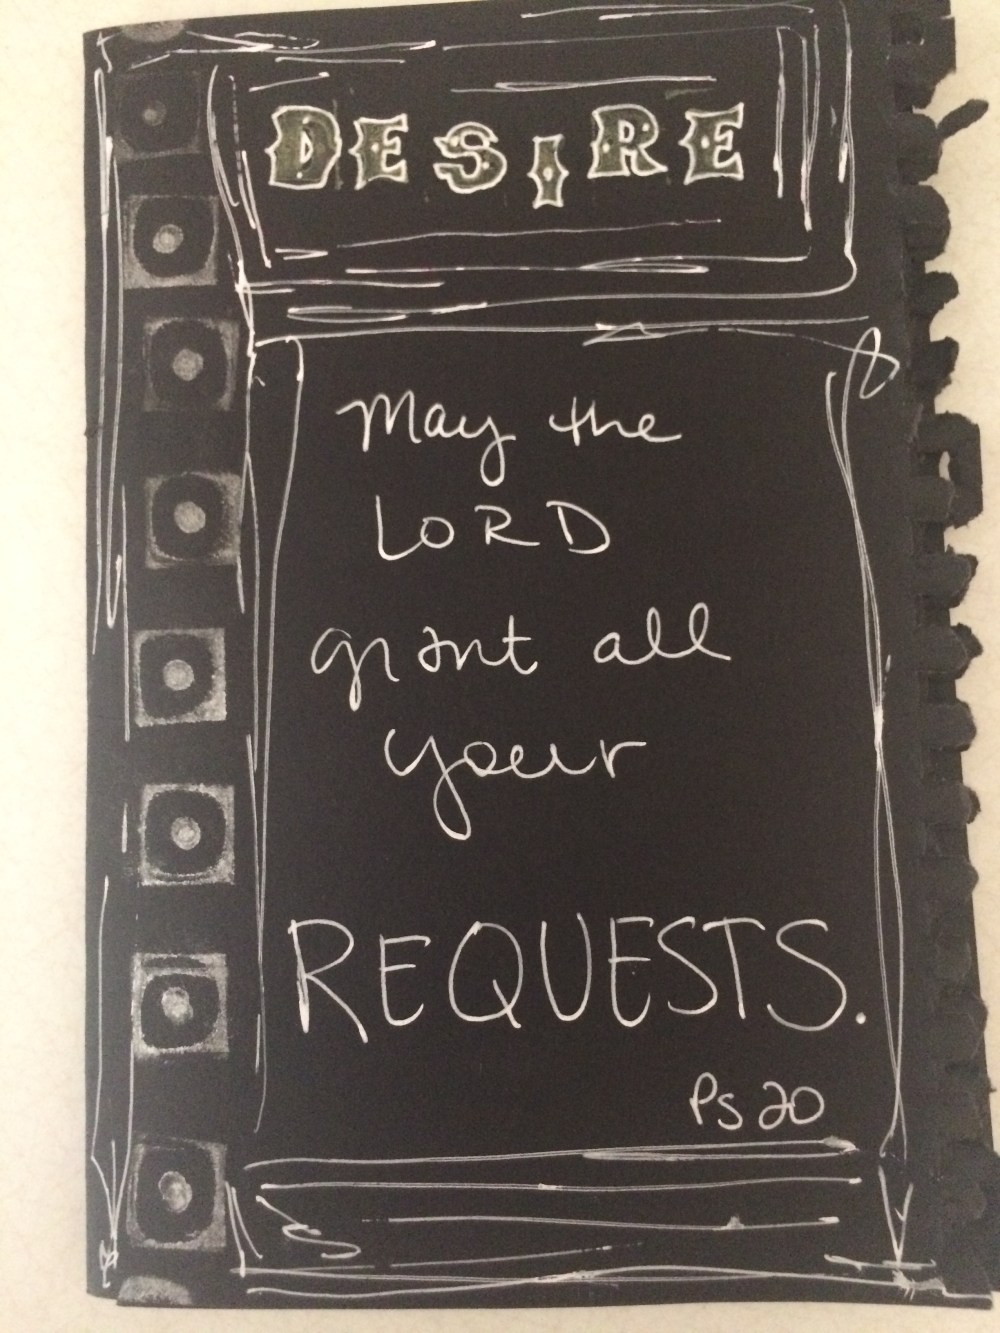 DESIRE
May the
LORD
grant all
your
REQUESTS.
Ps 20